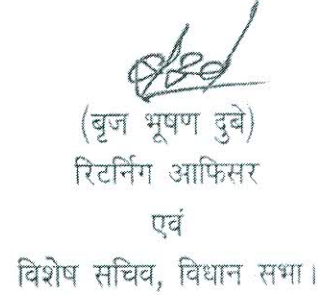 (बृज भूषण दुबे)
रिटर्निंग आफिसर
एवं
विशेष सचिव, विधान सभा।